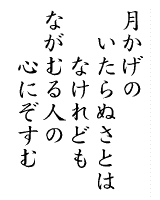 月かげの
いたらぬさとは
なけれども
ながむる人の
心にぞすむ